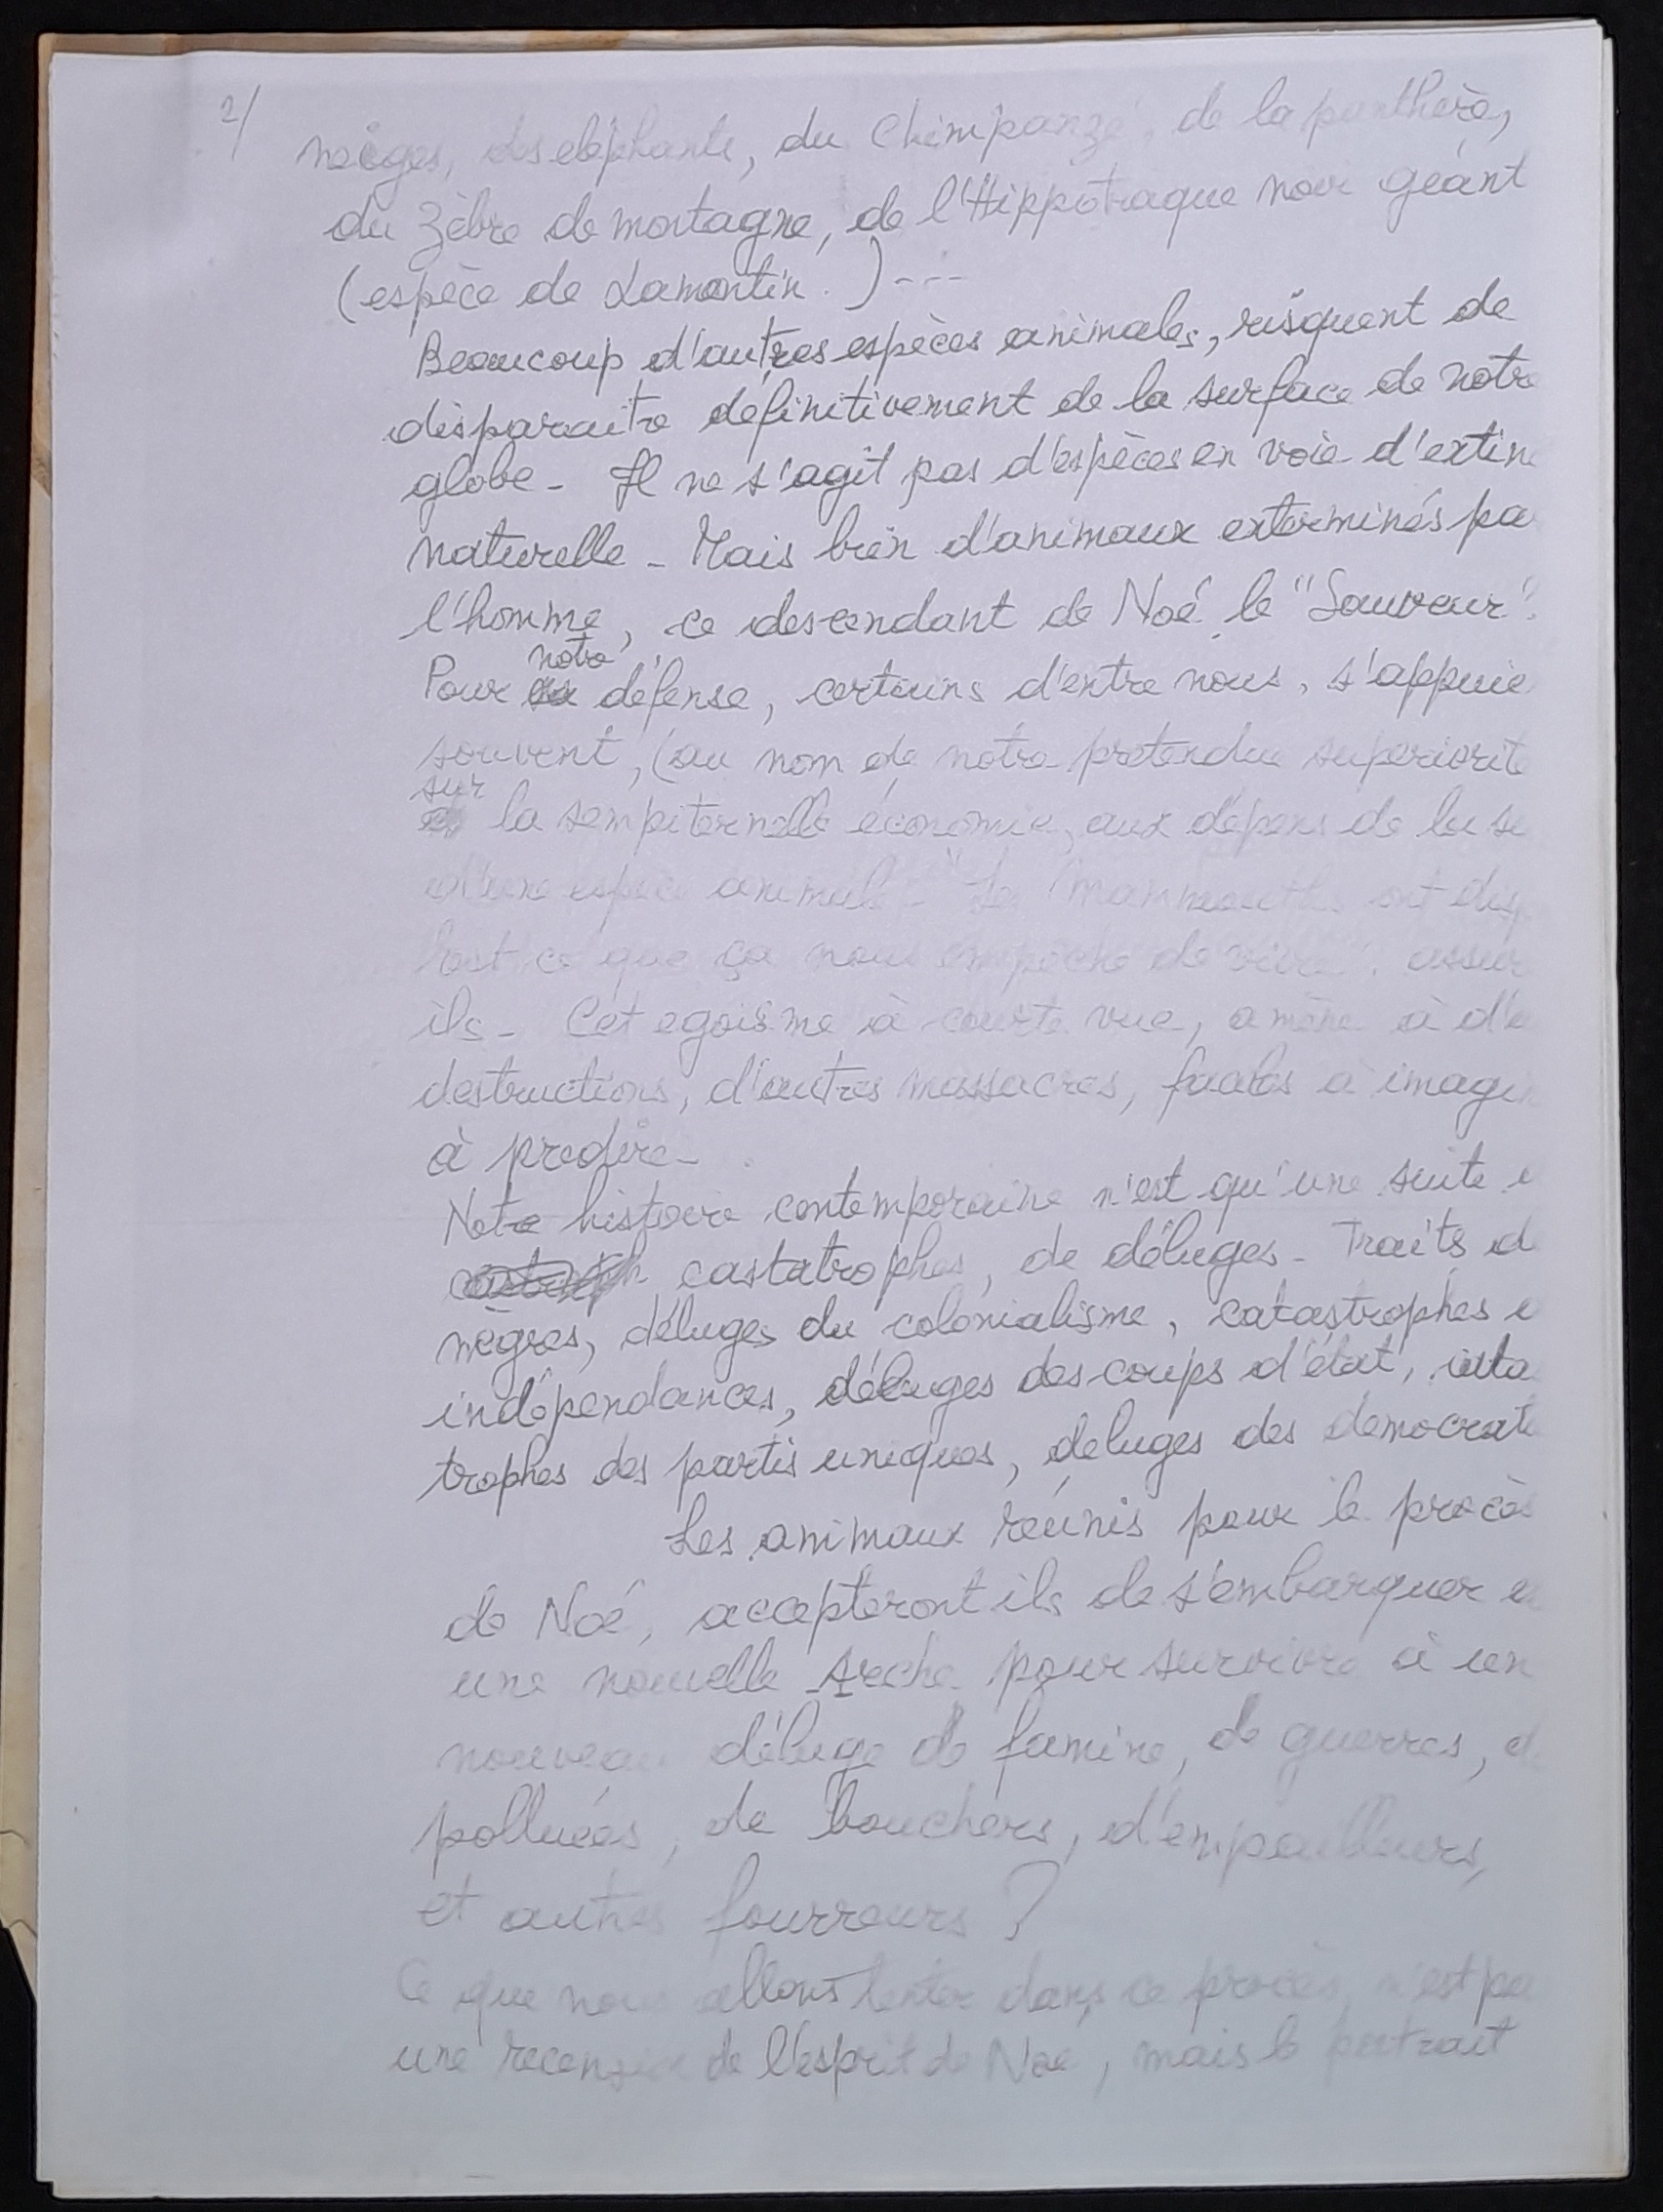 2/
neiges, des eléphants, du Chimpanzé, de la panthère,
du Zèbre de montagne, de l'Hippotraque noir géant
(espèce de Lamantin.) ---
Beaucoup d'autres espèces animales, risquent de
disparaitre définitivement de la surface de notre
globe - Il ne s'agit pas d'espèces en voie d'extin
naturelle - Mais bien d'animaux exterminés pa
l'homme, ce descendant de Noé le "Sauveur".
notre
Pour défense, certains d'entre nous, s'appuie
souvent, (au nom de notre pretendue superiorité
sur
la sempiternelle économie, aux dépens de la su
d'une espèce animale - "Les Mammouths ont disp
Est ce que ça nous empêche de vivre", assur
ils - Cet egoisme à courte vue, amène à d'a
destructions, d'autres massacres, faciles à imagin
à predire -
Notre histoire contemporaine n'est qu'une suite
castatrophes, de déluges - Traits d
nègres, déluges du colonialisme, catastrophes
indépendances, déluges des coups d'état, cata
trophes des partis uniques, deluges des democrat
Les animaux réunis pour le procès
de Noé, accepteront ils de s'embarquer
une nouvelle Arche pour survivre à un
nouveau déluge de famine, de guerres, d
polluées, de bouchers, d'empailleurs,
et autres fourreurs ?
Ce que nous allons tenter dans ce procès, n'est pa
une recension de l'esprit de Noé, mais le portrait